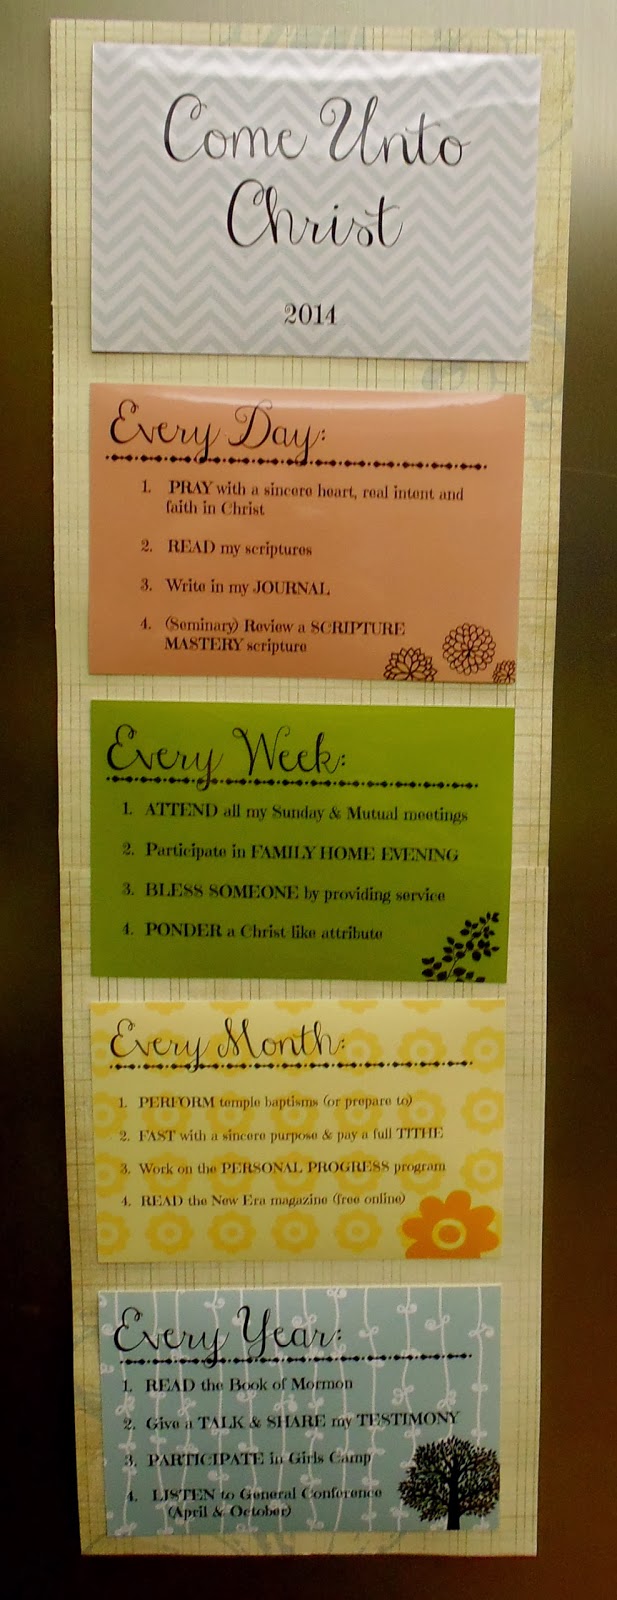 Come Unto
Christ
2014
Every Day:
1. PRAY with a sincere heart, real intent and
faith in Christ
2. READ my scriptures
3. Write in my JOURNAL
4. (Seminary) Review a SCRIPTURE
MASTERY scripture
Every Week:
1. ATTEND all my Sunday & Mutual meetings
2. Participate in FAMILY HOME EVENING
3. BLESS SOMEONE by providing service
4. PONDER a Christ like attribute
Every Month:
1. PERFORM temple baptisms (or prepare to)
2. FAST with a sincere purpose & pay a full TITHE
3. Work on the PERSONAL PROGRESS program
4. READ the New Era magazine (free online)
Every Year:
1. READ the Book of Mormon
2. Give a TALK & SHARE my TESTIMONY
3. PARTICIPATE in Girls Camp
4. LISTEN to General Conference
(April & October)